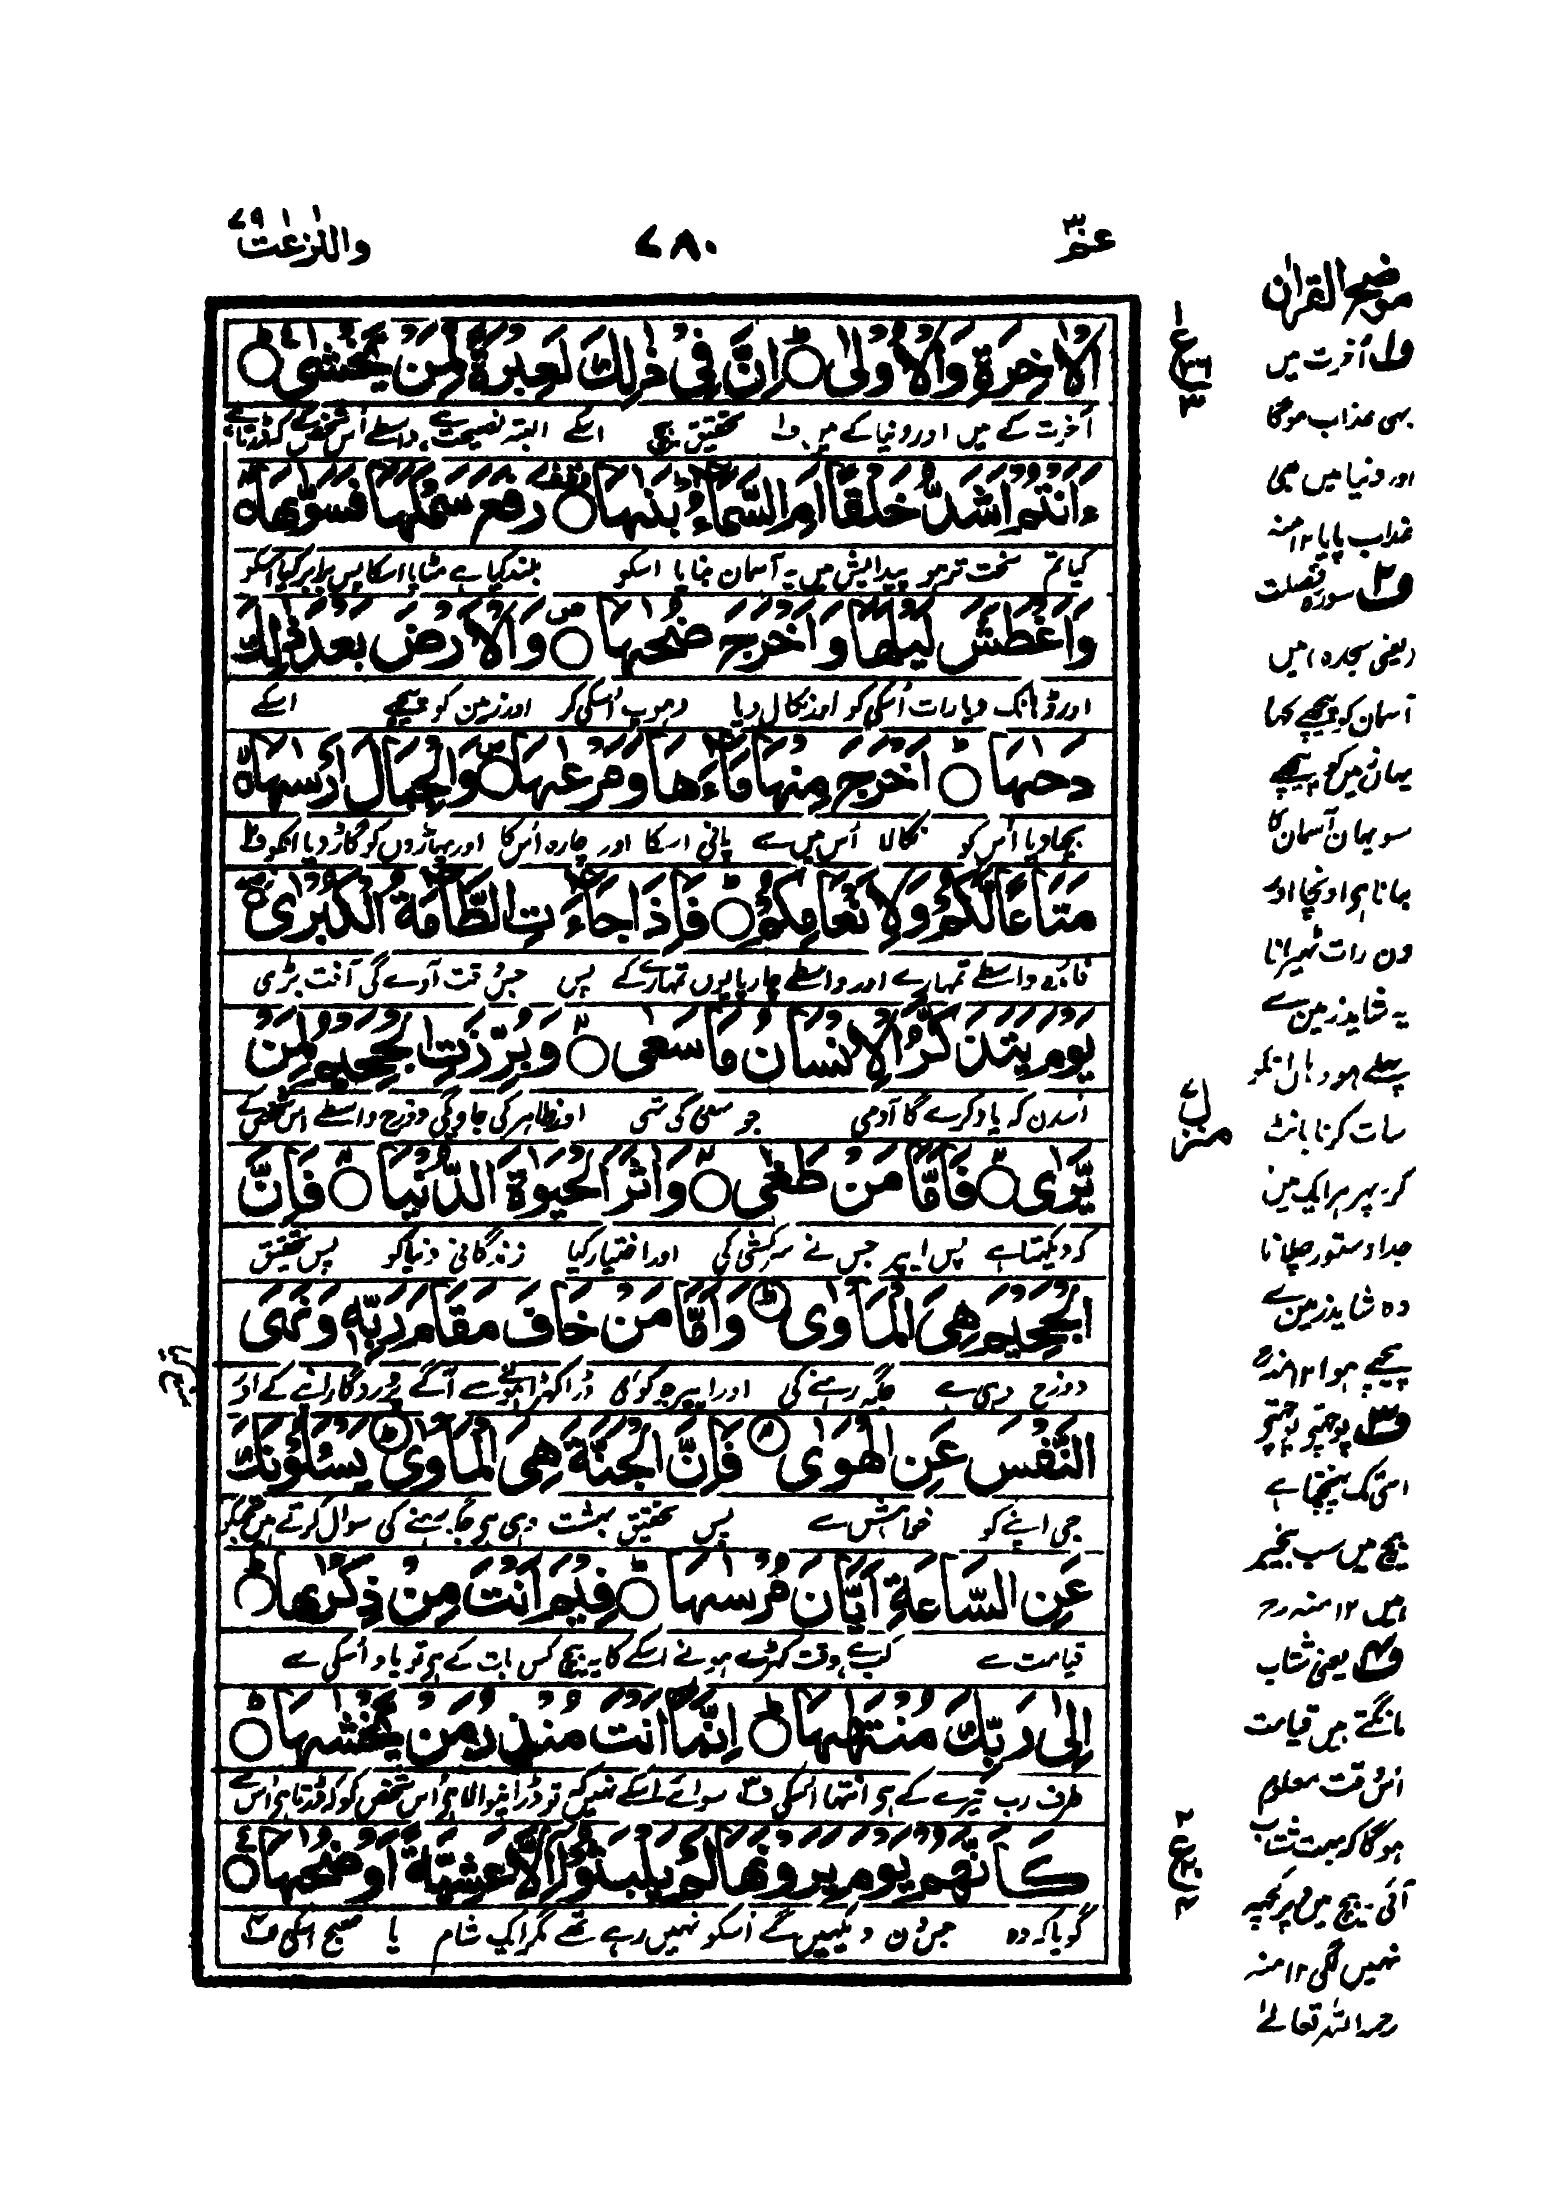 عم ٣٠
٧٨٠
والنزعت ٧٩
الْاٰخِرَةِ وَالْاُوْلٰى ؕ اِنَّ فِيْ ذٰلِكَ لَعِبْرَةً لِّمَنْ يَّخْشٰى ؕ
آخرت کے میں اور دنیا کے میں ف۱ تحقیق بیچ اسکے البتہ نصیحت ہے واسطے اُس شخص کے کہ ڈرتا ہے
ءَاَنْتُمْ اَشَدُّ خَلْقًا اَمِ السَّمَآءُ ؕ بَنٰىهَا رَفَعَ سَمْكَهَا فَسَوّٰىهَا ۙ
کیا تم سخت تر ہو پیدائش میں یہ آسمان بنایا اسکو بلند کیا ہے مٹاپا اسکا پس برابر کیا اسکو
وَاَغْطَشَ لَيْلَهَا وَاَخْرَجَ ضُحٰىهَا ۪ وَالْاَرْضَ بَعْدَ ذٰلِكَ
اور ڈہانک دیا رات اُسکی کو اور نکال دیا دہوپ اُسکی کو اور زمین کو پیچھے اسکے
دَحٰىهَا ؕ اَخْرَجَ مِنْهَا مَآءَهَا وَمَرْعٰىهَا ۪ وَالْجِبَالَ اَرْسٰىهَا ۙ
بچھا دیا اُس کو نکالا اُس میں سے پانی اسکا اور چارہ اُس کا اور پہاڑوں کو گاڑ دیا انکو ف۲
مَتَاعًا لَّكُمْ وَلِاَنْعَامِكُمْ ؕ فَاِذَا جَآءَتِ الطَّآمَّةُ الْكُبْرٰى ۖ
فائدہ واسطے تمہارے اور واسطے چارپایوں تمہارے کے پس جس وقت آوے گی آفت بڑی
يَوْمَ يَتَذَكَّرُ الْاِنْسَانُ مَا سَعٰى ۙ وَبُرِّزَتِ الْجَحِيْمُ لِمَنْ
اُسدن کہ یاد کرے گا آدمی جو سعی کی تھی اور ظاہر کی جاوگی دوزخ واسطے اس شخص کے
يَّرٰى ۙ فَاَمَّا مَنْ طَغٰى ۙ وَاٰثَرَ الْحَيٰوةَ الدُّنْيَا ۙ فَاِنَّ
کہ دیکہتا ہے پس ایپر جس نے سرکشی کی اور اختیار کیا زندگانی دنیا کو پس تحقیق
الْجَحِيْمَ هِيَ الْمَاْوٰى ؕ وَاَمَّا مَنْ خَافَ مَقَامَ رَبِّهٖ وَنَهَى
دوزخ وہی ہے جگہ رہنے کی اور ایپر جو کوئی ڈرا کھڑا ہونے سے آگے پروردگار اپنے کے اور
النَّفْسَ عَنِ الْهَوٰى ۙ فَاِنَّ الْجَنَّةَ هِيَ الْمَاْوٰى ؕ يَسْئَلُوْنَكَ
جی اپنے کو خواہش سے پس تحقیق بہشت وہی ہی جگہ رہنے کی سوال کرتے ہیں تجکو
عَنِ السَّاعَةِ اَيَّانَ مُرْسٰىهَا ؕ فِيْمَ اَنْتَ مِنْ ذِكْرٰىهَا ؕ
قیامت سے کب ہے وقت کھڑے ہونے اسکے کا یہ بیچ کس بات کے ہی تو یاد اُسکی سے
اِلٰى رَبِّكَ مُنْتَهٰىهَا ؕ اِنَّمَآ اَنْتَ مُنْذِرُ مَنْ يَّخْشٰىهَا ؕ
طرف رب تیرے کے ہی انتہا اسکی ف۳ سوائے اسکے نہیں کہ تو ڈرانیوالا ہی اُس شخص کو کہ ڈرتا ہی اس سے
كَاَنَّهُمْ يَوْمَ يَرَوْنَهَا لَمْ يَلْبَثُوْٓا اِلَّا عَشِيَّةً اَوْ ضُحٰىهَا ۧ
گویا کہ وہ جس دن دیکہیں گے اُسکو نہیں رہے تھے مگر ایک شام یا صبح اسکی ف۴
موضح القرآن
ف۱ آخرت میں
بہی عذاب ہوگا
اور دنیا میں بہی
عذاب پایا ۱۲ منہ
ف۲ سورہ فصلت
(یعنی سجدہ) میں
آسمان کو پیچھے کہا
یہاں زمین کو پیچھے
سو یہاں آسمان کا
بنانا ہی اونچا اور
دن رات ٹھہرانا
یہ شاید زمین سے
پہلے ہو وہاں انکو
سات کرنا بانٹ
کر پہر ہر ایک میں
جدا دستور چلانا
وہ شاید زمین سے
پیچھے ہوا ۱۲ منہ
ف۳ پوچہتے پوچہتے
اسی تک پہنچنا ہے
بیچ میں سب بیخبر
ہیں ۱۲ منہ رح
ف۴ یعنی شتاب
مانگتے ہیں قیامت
اُس وقت معلوم
ہوگا کہ بہت شتاب
آئی بیچ میں دیر کچھ
نہیں لگی ۱۲ منہ
رحمہ اللہ تعالےٰ
ع
منزل ۷
ع